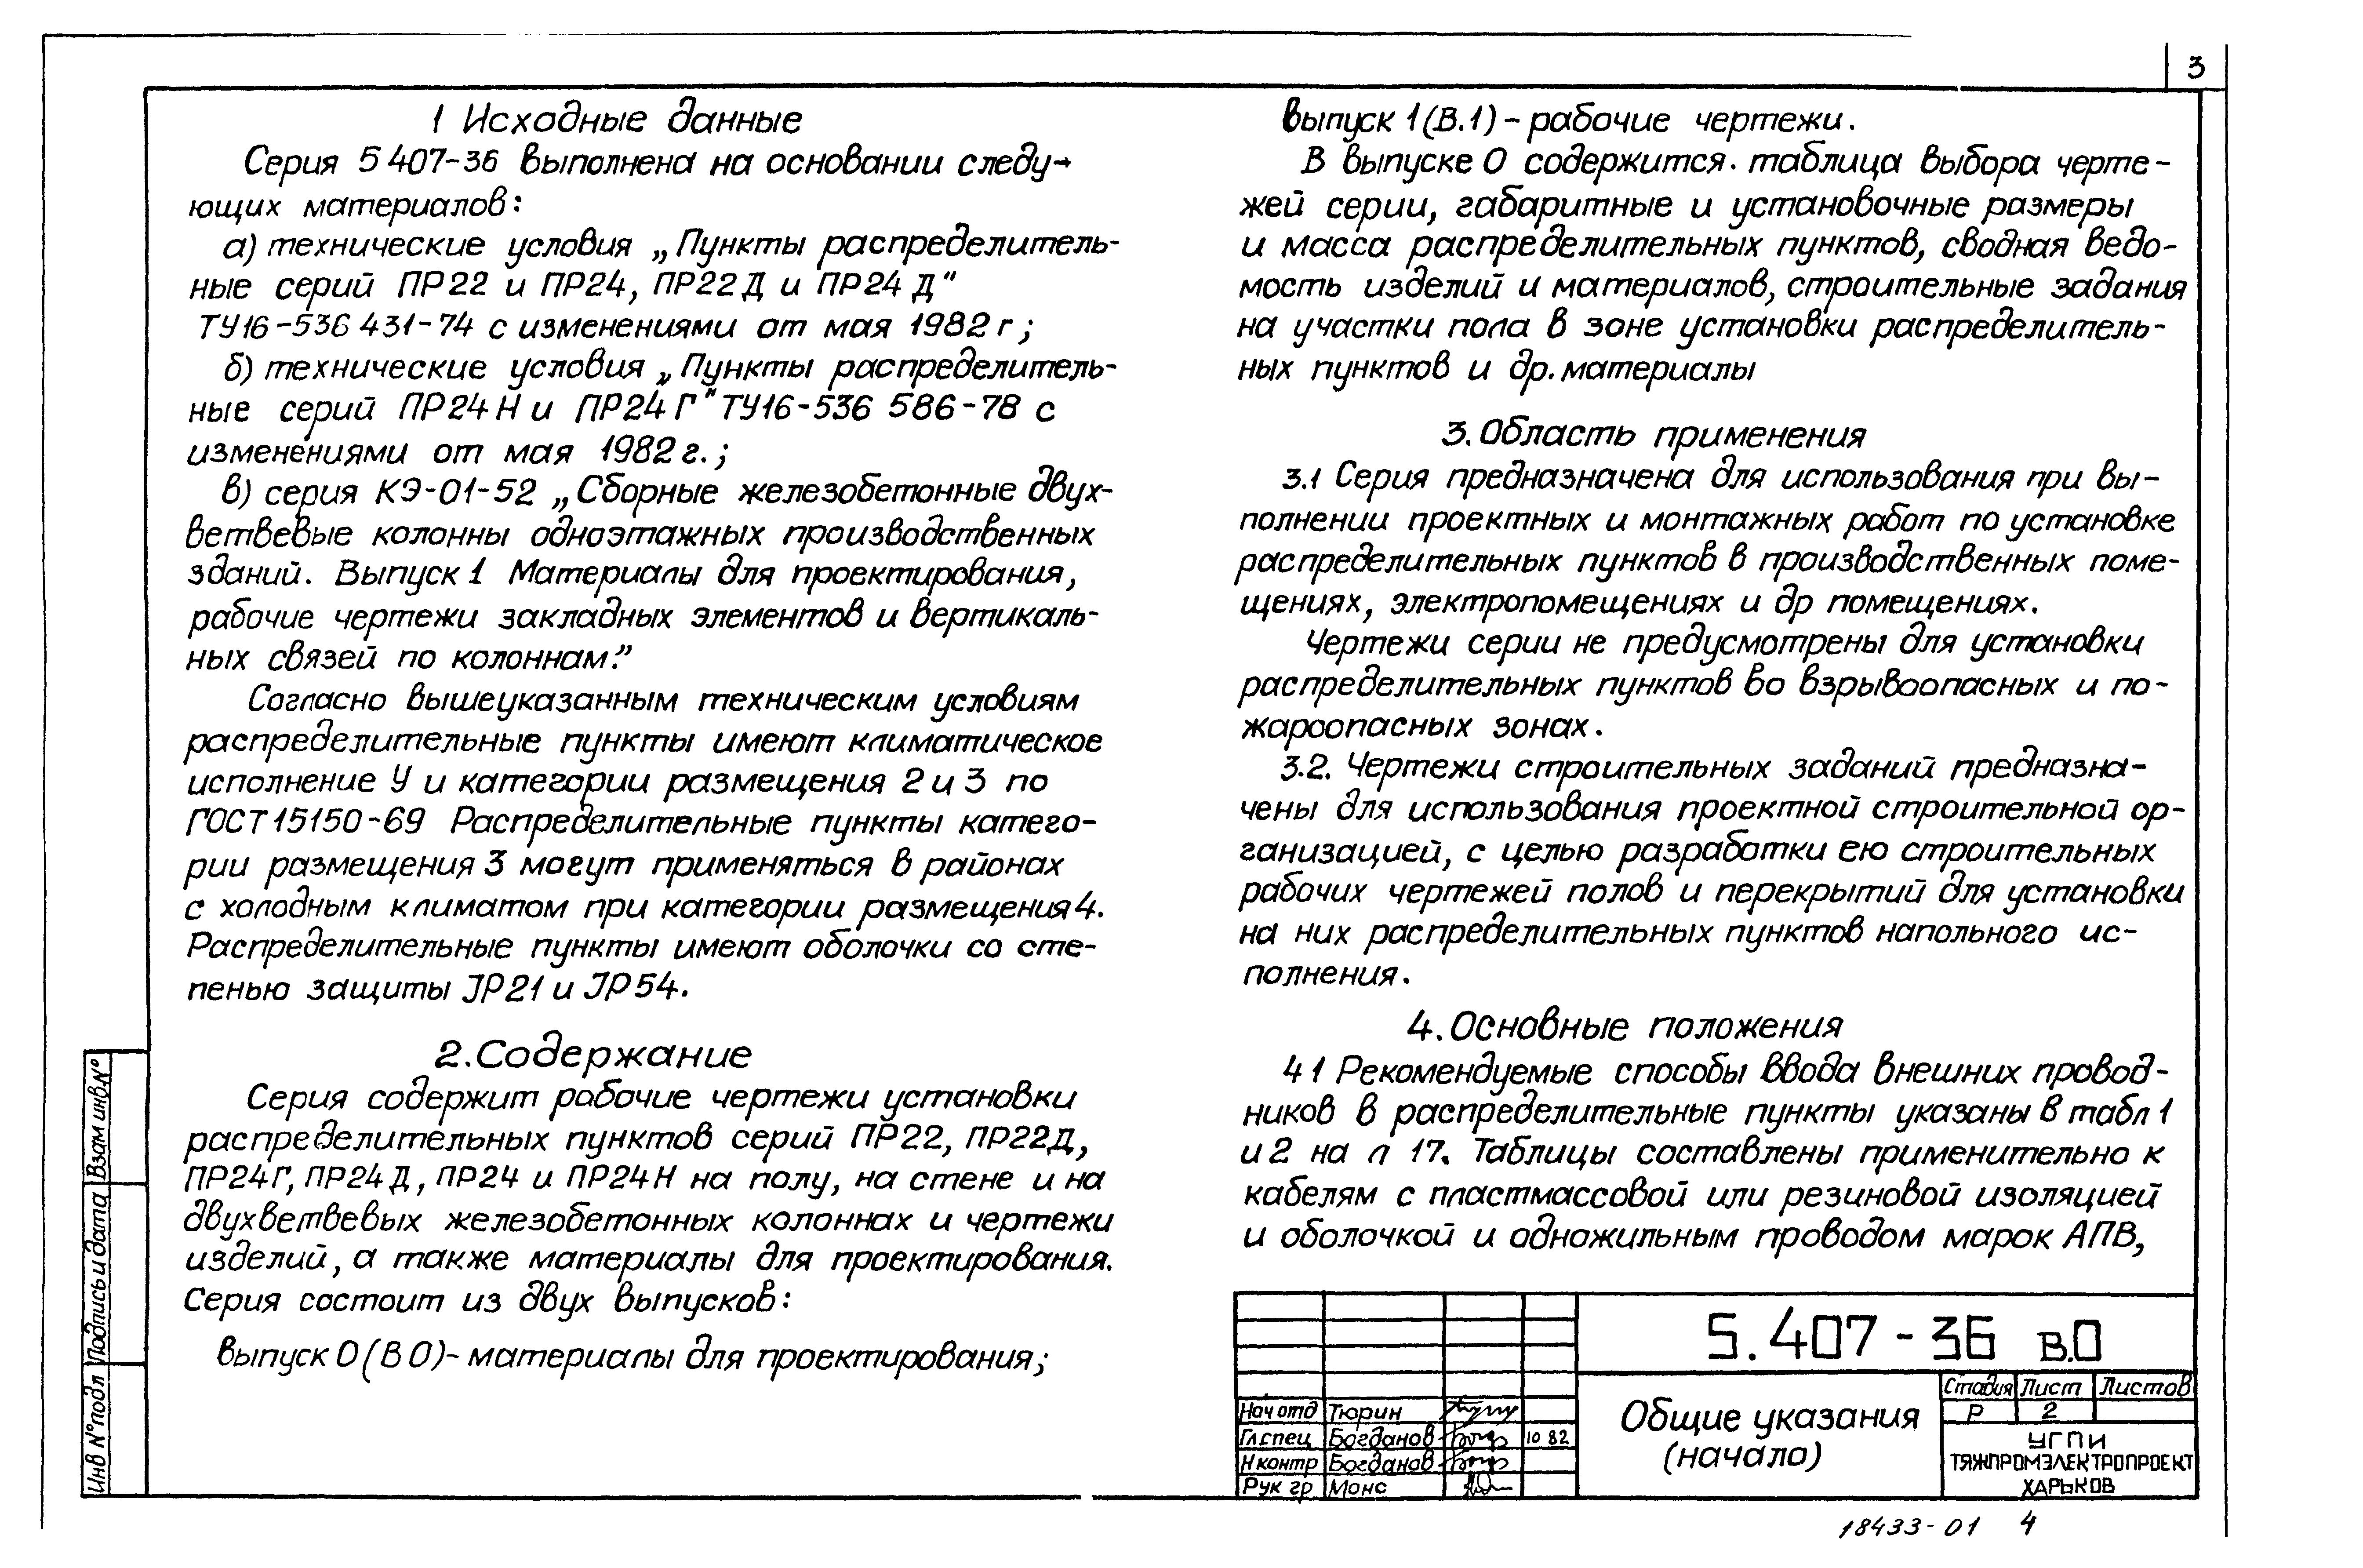 3
1 Исходные данные
Серия 5 407-36 выполнена на основании следу-
ющих материалов:
а) технические условия „Пункты распределитель-
ные серий ПР22 и ПР24, ПР22Д и ПР24 Д"
ТУ16-536 431-74 с изменениями от мая 1982 г;
б) технические условия „Пункты распределитель-
ные серий ПР24Н и ПР24Г" ТУ16-536 586-78 с
изменениями от мая 1982 г.;
в) серия КЭ-01-52 „Сборные железобетонные двух-
ветвевые колонны одноэтажных производственных
зданий. Выпуск 1 Материалы для проектирования,
рабочие чертежи закладных элементов и вертикаль-
ных связей по колоннам."
Согласно вышеуказанным техническим условиям
распределительные пункты имеют климатическое
исполнение У и категории размещения 2 и 3 по
ГОСТ 15150-69 Распределительные пункты катего-
рии размещения 3 могут применяться в районах
с холодным климатом при категории размещения 4.
Распределительные пункты имеют оболочки со сте-
пенью защиты JP21 и JP54.
2. Содержание
Серия содержит рабочие чертежи установки
распределительных пунктов серий ПР22, ПР22Д,
ПР24Г, ПР24Д, ПР24 и ПР24Н на полу, на стене и на
двухветвевых железобетонных колоннах и чертежи
изделий, а также материалы для проектирования.
Серия состоит из двух выпусков:
выпуск 0 (В 0)- материалы для проектирования;
выпуск 1 (В.1) - рабочие чертежи.
В выпуске 0 содержится. таблица выбора черте-
жей серии, габаритные и установочные размеры
и масса распределительных пунктов, сводная ведо-
мость изделий и материалов, строительные задания
на участки пола в зоне установки распределитель-
ных пунктов и др. материалы
3. Область применения
3.1 Серия предназначена для использования при вы-
полнении проектных и монтажных работ по установке
распределительных пунктов в производственных поме-
щениях, электропомещениях и др помещениях.
Чертежи серии не предусмотрены для установки
распределительных пунктов во взрывоопасных и по-
жароопасных зонах.
3.2. Чертежи строительных заданий предназна-
чены для использования проектной строительной ор-
ганизацией, с целью разработки ею строительных
рабочих чертежей полов и перекрытий для установки
на них распределительных пунктов напольного ис-
полнения.
4. Основные положения
4 1 Рекомендуемые способы ввода внешних провод-
ников в распределительные пункты указаны в табл 1
и 2 на л 17. Таблицы составлены применительно к
кабелям с пластмассовой или резиновой изоляцией
и оболочкой и одножильным проводом марок АПВ,
5.407-36 В.0
Общие указания
(начало)
Стадия Лист Листов
Р 2
УГПИ
ТЯЖПРОМЭЛЕКТРОПРОЕКТ
ХАРЬКОВ
Нач отд Тюрин
Гл.спец Богданов 10 82
Н контр Богданов
Рук гр Монс
Инв № подл Подпись и дата Взам инв №
18433-01 4